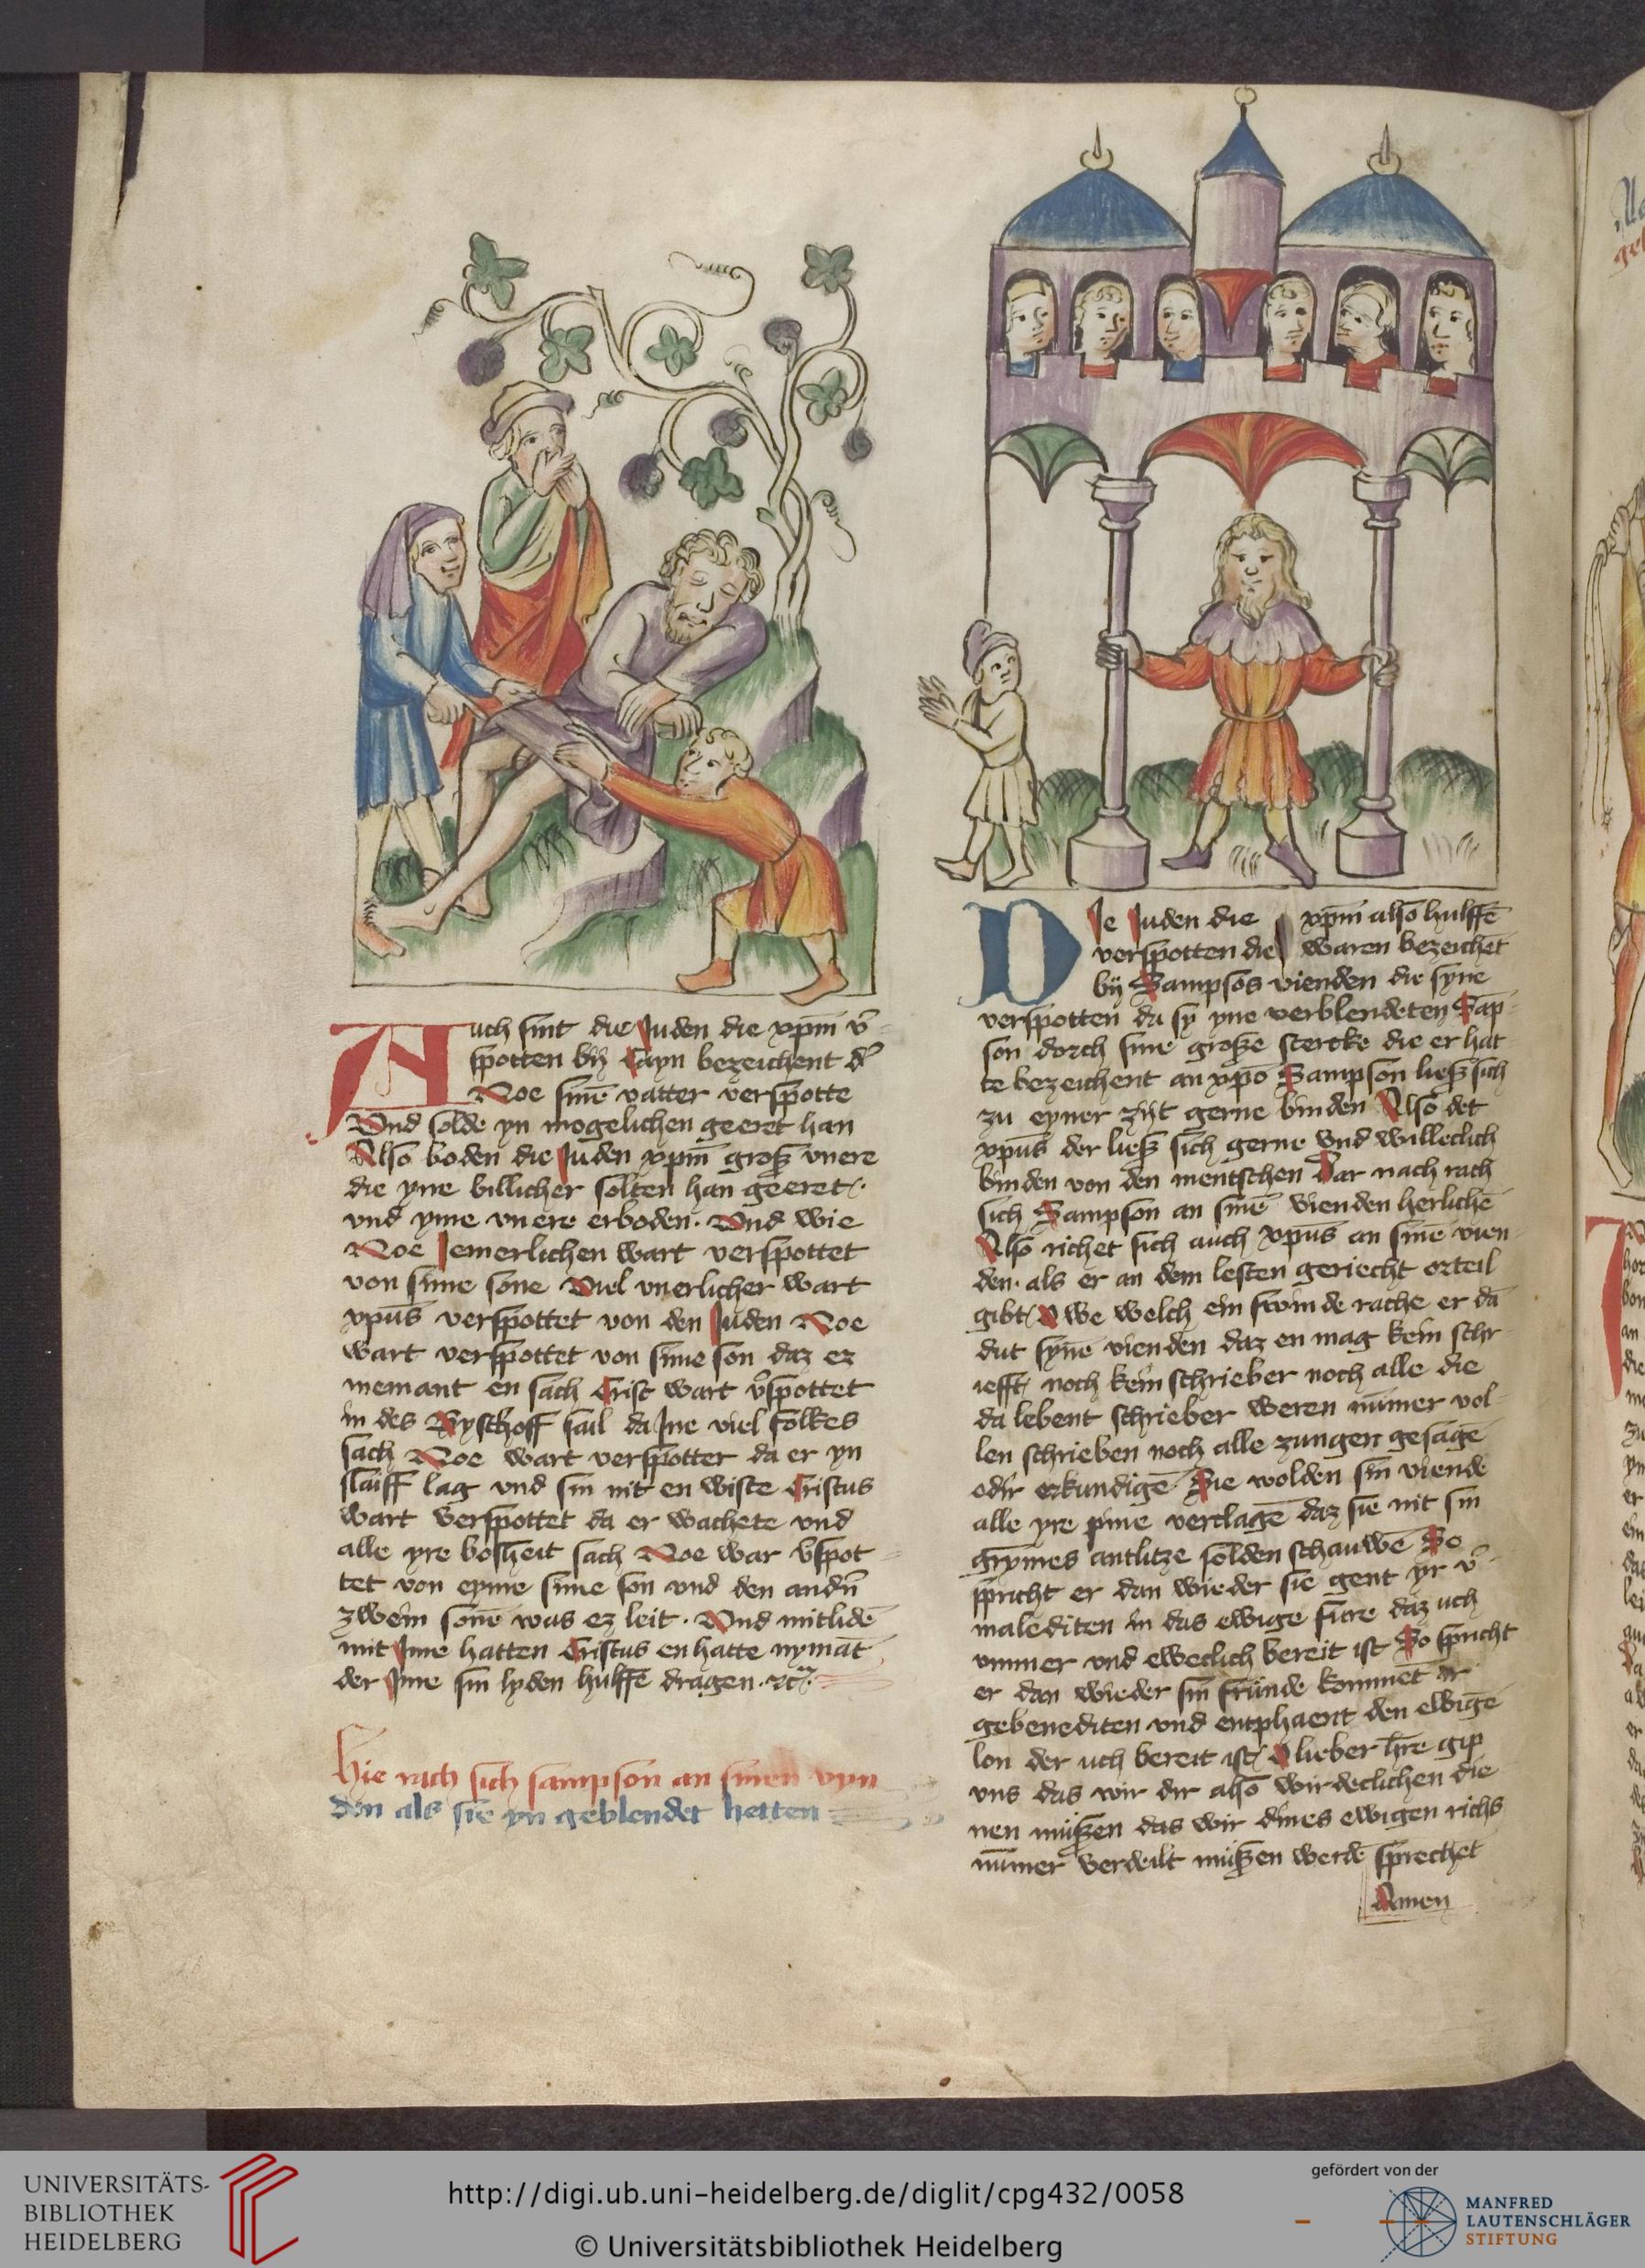 Auch sint die Juden die xp̄m v̄
spotten bij Cayn bezeichent d̄
Noe sinē vatter verspotte
Vnd solde yn mogelichen geeret han
Also boden die Juden xp̄m groß vnere
die yne billicher solten han geeret
vnd yme vnere erboden. Vnd wie
Noe Jemerlichen wart verspottet
von sime sone Viel vnerlicher wart
xp̄us verspottet von den Juden Noe
wart verspottet von sime son daz ez
niemant en sach Crist wart v̄spottet
in des Byschoff sail da Jne viel folkes
sach Noe wart verspotter da er yn
slaiff lag vnd sin nit en wiste Cristus
wart verspottet da er wachete vnd
alle yre bosheit sach Noe war v̄spot
tet von eyme sime son vnd den andn̄
zwein sonē was ez leit. Vnd mitlidē
mit Jme hatten Cristus en hatte nymāt
der Jme sin lyden hulffē dragen. ꝛc̄.
Hie rach sich sampson an sinen vyn
den als sie yn geblendet hetten
Die Juden die xp̄m also hulffē
verspotten die waren bezeichēt
bij Sampsos vienden die syne
verspotten da sy yne verblendeten Sap
son dorch sine große stercke die er hat
te bezeichent an xp̄o Sampson ließ sich
zu eyner zijt gerne binden Also det
xp̄us der ließ sich gerne vnd willeclich
binden von den mentschen Dar nach rach
sich Sampson an sinē vienden herlichē
Also richet sich auch xp̄us an sinē vien
den. als er an dem lesten geriecht orteil
gibt O we welch ein swinde rache er dā
dut synē vienden daz en mag kein schr
iefft noch kein schrieber noch alle die
da lebent schrieber weren nūmer vol
len schrieben noch alle zungen gesagē
odir erkundigē Sie wolden sin viende
alle yre pine verclagē daz sie nit sin
grymes antlitze solden schauwē So
spricht er dan wieder sie gent yr v̄
malediten in das ewige fure daz uch
vmmer vnd eweclich bereit ist So spricht
er dan wieder sin frunde kommēt ir
gebenediten vnd entphaent den ewigē
lon der uch bereit ist O lieber h̄re gip
vns das wir dir also wirdeclichen die
nen mußen das wir dines ewigen richs
nūmer verdeilt mußen werdē sprechet
Amen
UNIVERSITÄTS-
BIBLIOTHEK
HEIDELBERG
http://digi.ub.uni-heidelberg.de/diglit/cpg432/0058
© Universitätsbibliothek Heidelberg
gefördert von der
MANFRED
LAUTENSCHLÄGER
STIFTUNG